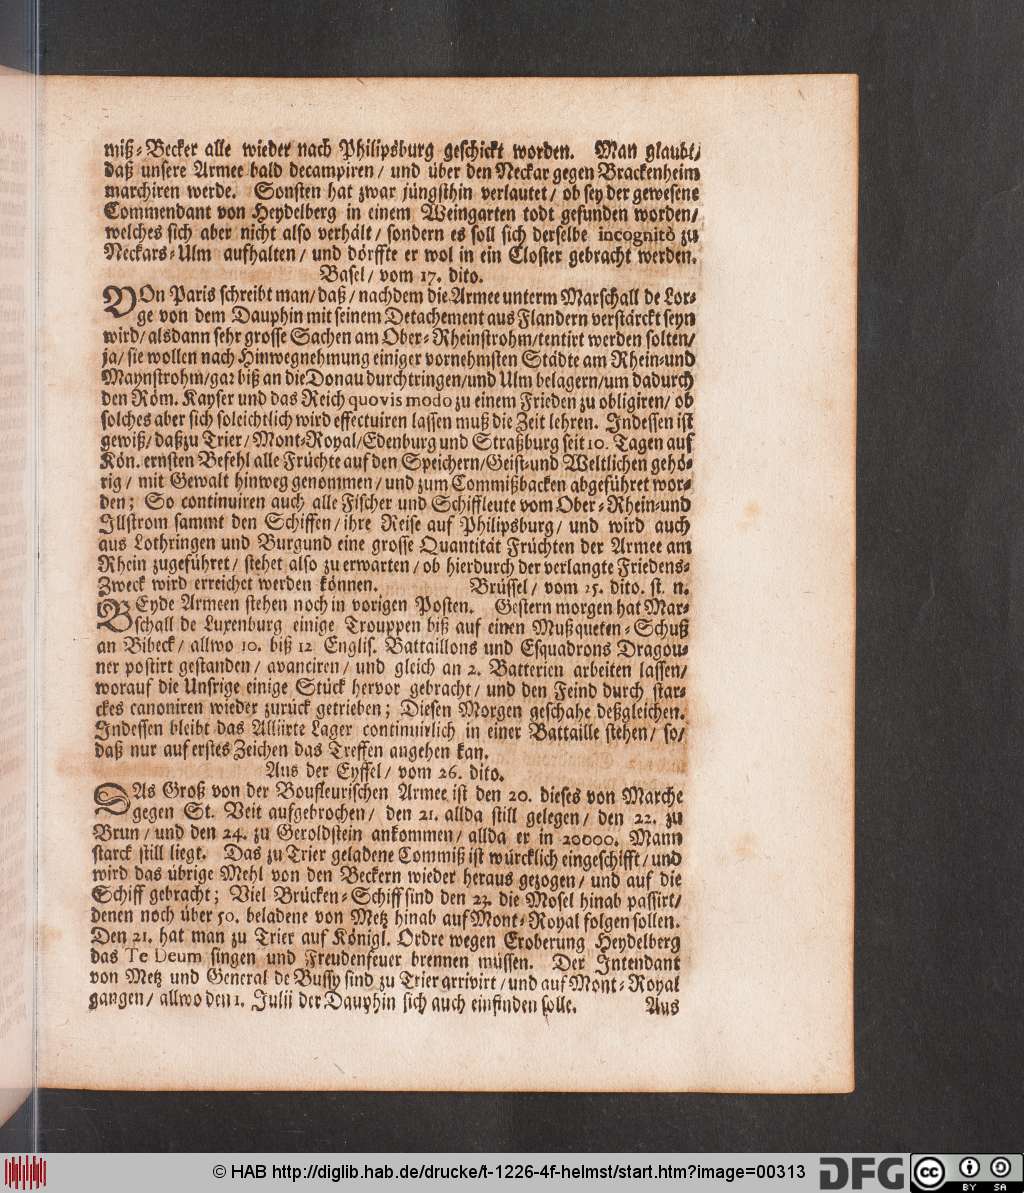 miß-Becker alle wieder nach Philipsburg geschickt worden. Man glaubt/
daß unsere Armee bald decampiren/ und über den Neckar gegen Brackenheim
marchiren werde. Sonsten hat zwar jüngsthin verlautet/ ob sey der gewesene
Commendant von Heydelberg in einem Weingarten todt gefunden worden/
welches sich aber nicht also verhält/ sondern es soll sich derselbe incognitò zu
Neckars-Ulm aufhalten/ und dörffte er wol in ein Closter gebracht werden.
Basel/ vom 17. dito.
VOn Paris schreibt man/ daß/ nachdem die Armee unterm Marschall de Lor-
ge von dem Dauphin mit seinem Detachement aus Flandern verstärckt seyn
wird/ alsdann sehr grosse Sachen am Ober-Rheinstrohm/ tentirt werden solten/
ja/ sie wollen nach Hinwegnehmung einiger vornehmsten Städte am Rhein-und
Maynstrohm/ gar biß an die Donau durchtringen/ und Ulm belagern/ um dadurch
den Röm. Kayser und das Reich quovis modo zu einem Frieden zu obligiren/ ob
solches aber sich so leichtlich wird effectuiren lassen muß die Zeit lehren. Indessen ist
gewiß/ daß zu Trier/ Mont-Royal/ Edenburg und Straßburg seit 10. Tagen auf
Kön. ernsten Befehl alle Früchte auf den Speichern/ Geist-und Weltlichen gehö-
rig/ mit Gewalt hinweg genommen/ und zum Commißbacken abgeführet wor-
den; So continuiren auch alle Fischer und Schiffleute vom Ober-Rhein-und
Illstrom sammt den Schiffen/ ihre Reise auf Philipsburg/ und wird auch
aus Lothringen und Burgund eine grosse Quantität Früchten der Armee am
Rhein zugeführet/ stehet also zu erwarten/ ob hierdurch der verlangte Friedens-
Zweck wird erreichet werden können. Brüssel/ vom 25. dito. st. n.
BEyde Armeen stehen noch in vorigen Posten. Gestern morgen hat Mar-
schall de Luxenburg einige Trouppen biß auf einen Mußqueten-Schuß
an Bibeck/ allwo 10. biß 12 Englis. Battaillons und Esquadrons Dragou-
ner postirt gestanden/ avanciren/ und gleich an 2. Batterien arbeiten lassen/
worauf die Unsrige einige Stück hervor gebracht/ und den Feind durch star-
ckes canoniren wieder zurück getrieben; Diesen Morgen geschahe deßgleichen.
Indessen bleibt das Alliirte Lager continuirlich in einer Battaille stehen/ so/
daß nur auf erstes Zeichen das Treffen angehen kan.
Aus der Eyffel/ vom 26. dito.
DAs Groß von der Boufleurischen Armee ist den 20. dieses von Marche
gegen St. Veit aufgebrochen/ den 21. allda still gelegen/ den 22. zu
Brun/ und den 24. zu Geroldstein ankommen/ allda er in 20000. Mann
starck still liegt. Das zu Trier geladene Commiß ist würcklich eingeschifft/ und
wird das übrige Mehl von den Beckern wieder heraus gezogen/ und auf die
Schiff gebracht; Viel Brücken-Schiff sind den 23. die Mosel hinab passirt/
denen noch über 50. beladene von Metz hinab auf Mont-Royal folgen sollen.
Den 21. hat man zu Trier auf Königl. Ordre wegen Eroberung Heydelberg
das Te Deum singen und Freudenfeuer brennen müssen. Der Intendant
von Metz und General de Bussy sind zu Trier arrivirt/ und auf Mont-Royal
gangen/ allwo den 1. Julii der Dauphin sich auch einfinden solle. Aus
© HAB http://diglib.hab.de/drucke/t-1226-4f-helmst/start.htm?image=00313
DFG cc BY SA